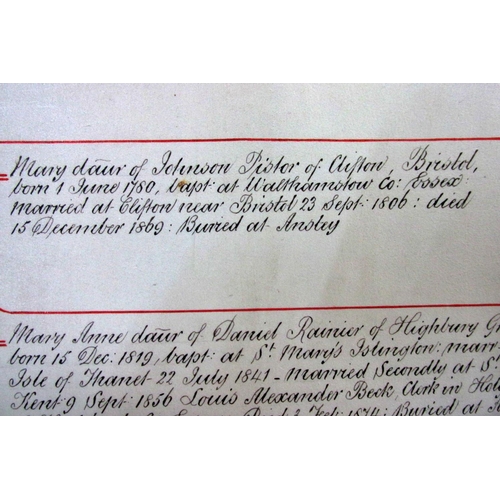 Mary daur of Johnson Pistor of Clifton, Bristol,
born 1 June 1780, bapt: at Walthamstow Co: Essex
married at Clifton near Bristol 23 Sept: 1806: died
15 December 1869: Buried at Ansley
Mary Anne daur of Daniel Rainier of Highbury
born 15 Dec: 1819, bapt: at St. Mary's Islington: marr
Isle of Thanet 22 July 1841 - married Secondly at St.
Kent 9 Sept: 1856 Louis Alexander Beck, Clerk in
1874: Buried at